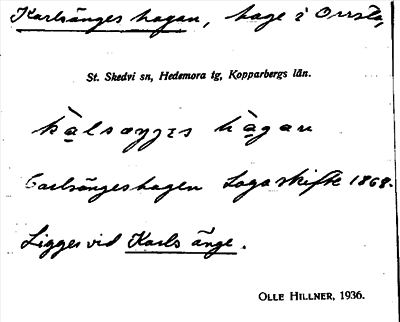 Karlsänges hagan, hage i Orrsta,
St. Skedvi sn, Hedemora tg, Kopparbergs län.
hàgan
Carlsängeshagen Laga skifte 1868.
Ligger vid Karls änge.
OLLE HILLNER, 1936.